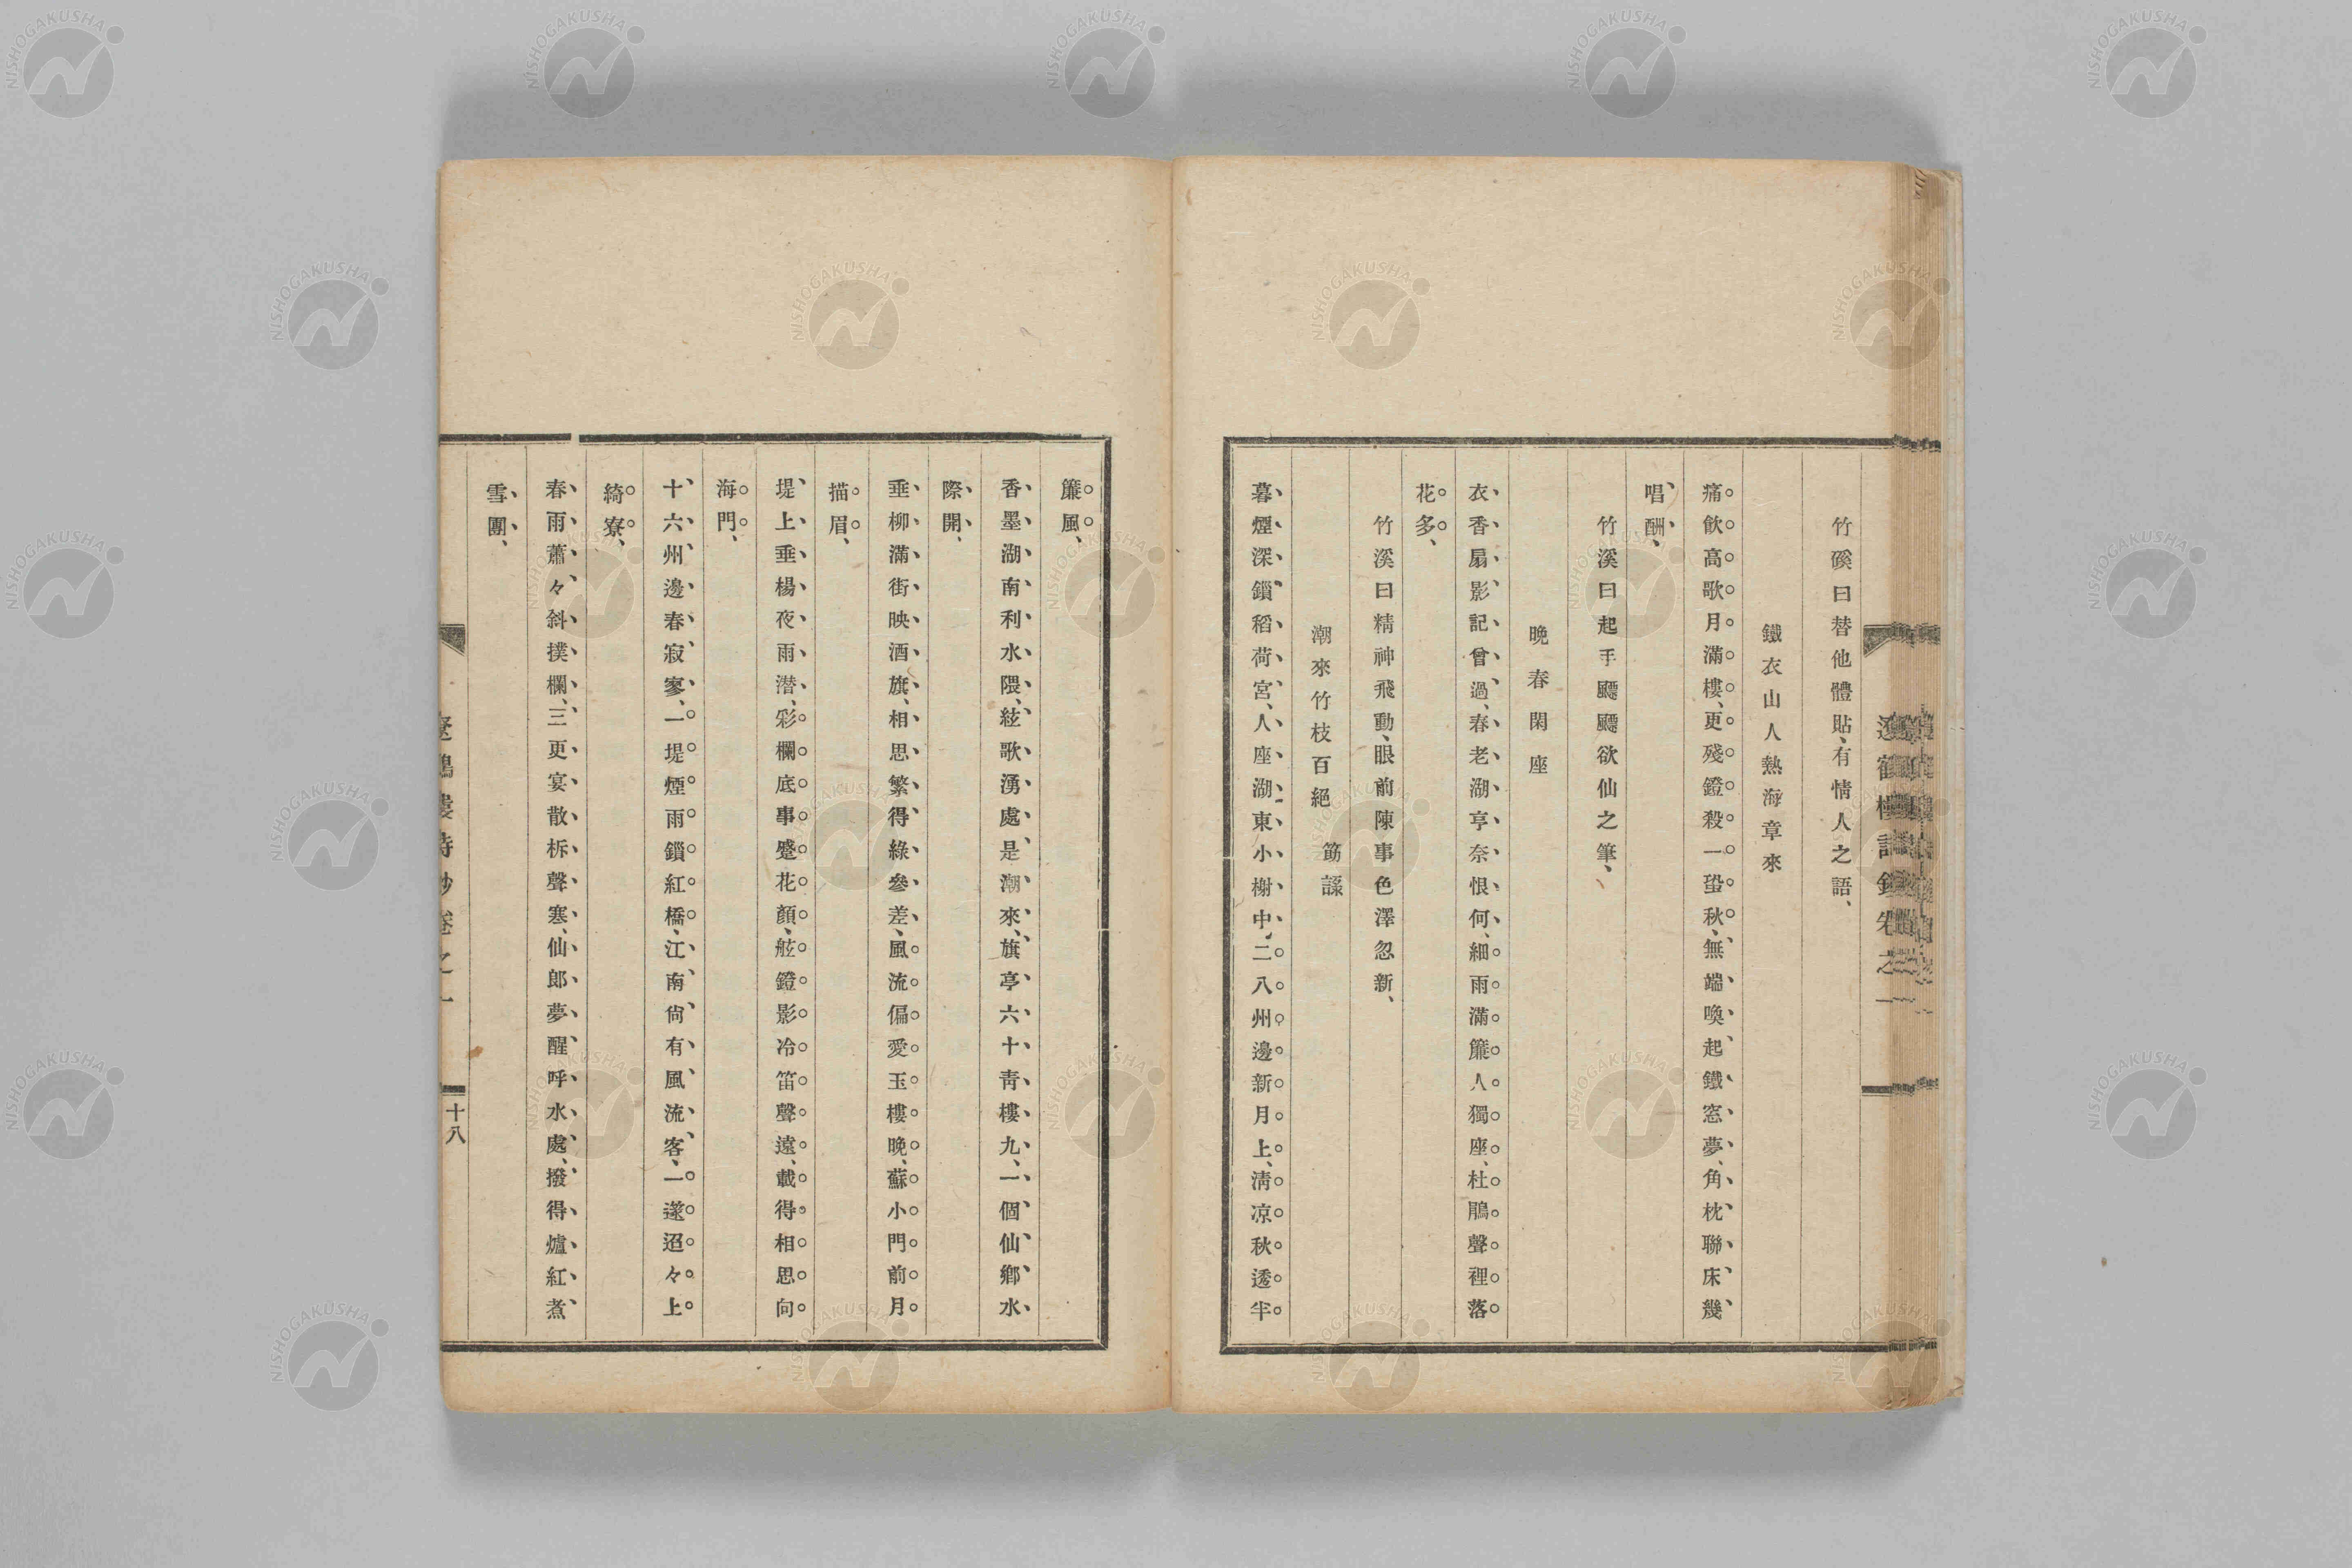 竹磎曰替他體貼、有情人之語、
鐵衣山人熱海章來
痛飲高歌月滿樓、更殘鐙殺一蛩秋、無端喚起鐵窓夢、角枕聯床幾
唱酬、
竹溪曰起手飃飃欲仙之筆、
晚春閑座
衣香扇影記曾過、春老湖亭奈恨何、細雨滿簾人獨座、杜鵑聲裡落
花多、
竹溪曰精神飛動、眼前陳事色澤忽新、
潮來竹枝百絕 節錄
暮煙深鎖稻荷宮、人座湖東小榭中、二八州邊新月上、淸凉秋透半
簾風、
香墨湖南利水隈、絃歌湧處是潮來、旗亭六十靑樓九、一個仙鄉水
際開、
垂柳滿街映酒旗、相思繁得綠參差、風流偏愛玉樓晚、蘇小門前月
描眉、
堤上垂楊夜雨潜、彩欄底事蹙花顏、舷鐙影冷笛聲遠、載得相思向
海門、
十六州邊春寂寥、一堤煙雨鎖紅橋、江南尙有風流客、一邃迢々上
綺寮、
春雨蕭々斜撲欄、三更宴散柝聲寒、仙郎夢醒呼水處、撥得爐紅煮
雪團、
遼鶴樓詩鈔卷之一
十八
NISHOGAKUSHA